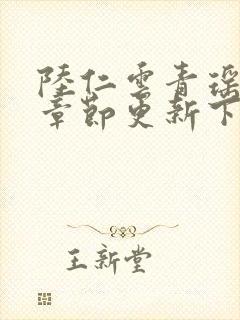 陸仁雲青瑶
章節更新下
王新堂